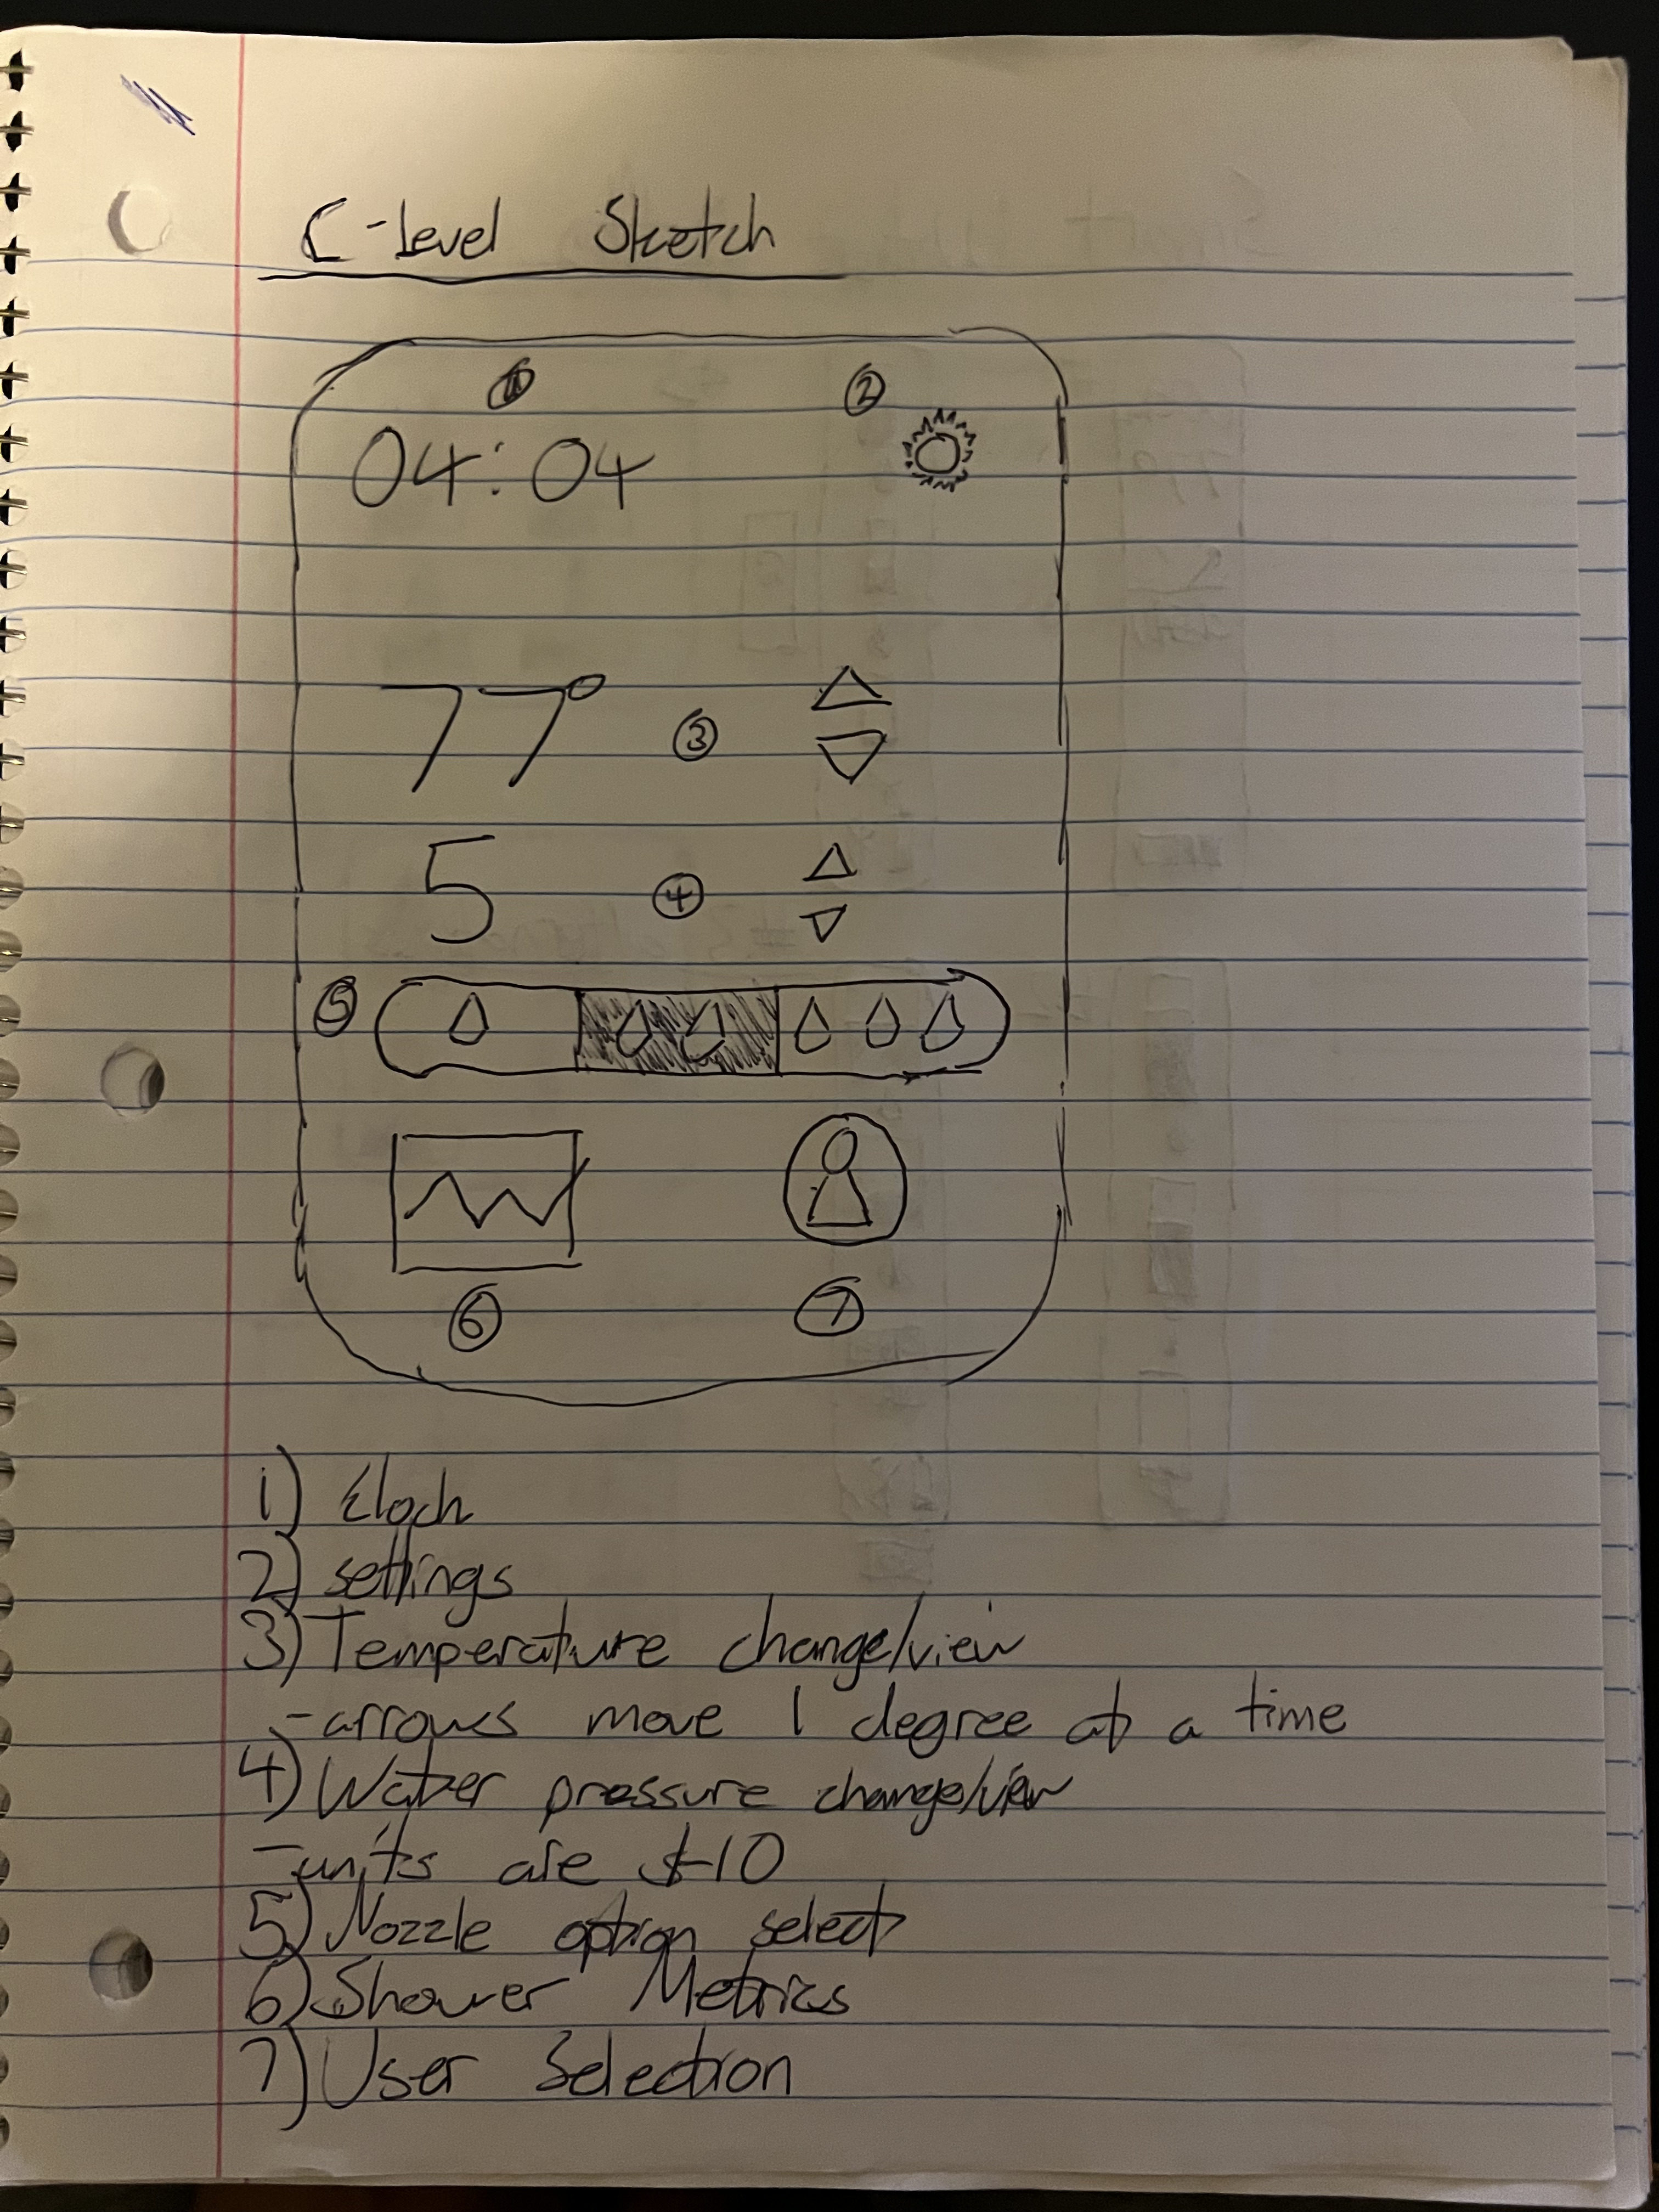 C-level Sketch
1 2
04:04
77° 3
5 4
5
6 7
1) Clock
2) settings
3) Temperature change/view
-arrows move 1 degree at a time
4) Water pressure change/view
-units are 1-10
5) Nozzle option select
6) Shower Metrics
7) User Selection